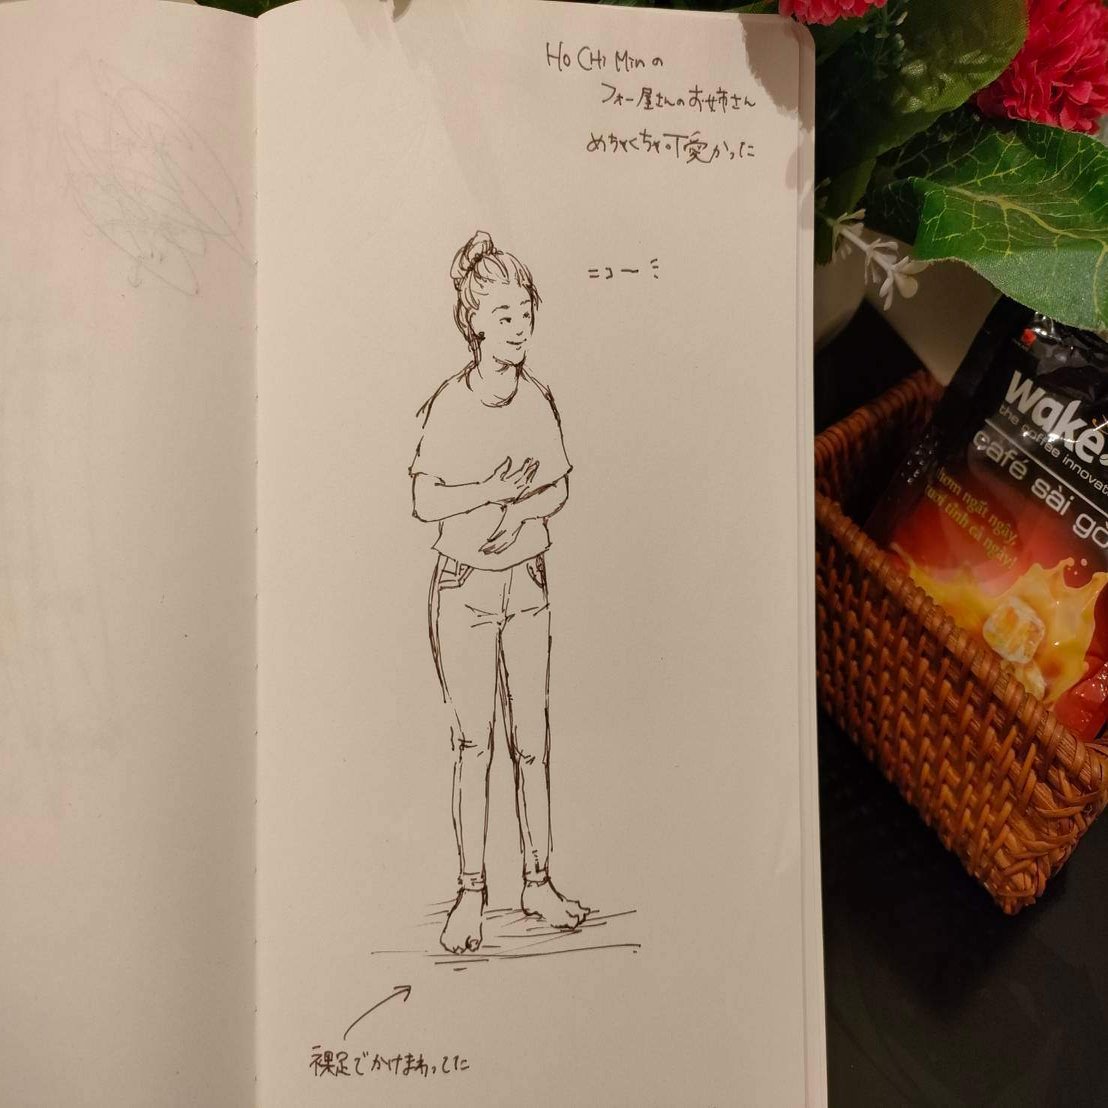 Ho CHi Minの
フォー屋さんのお姉さん
めちゃくちゃ可愛かった
ニコー
裸足でかけまわってた
wake
the coffee innovat
café sài gò
hơm ngất ngây,
tươi tỉnh cả ngày!